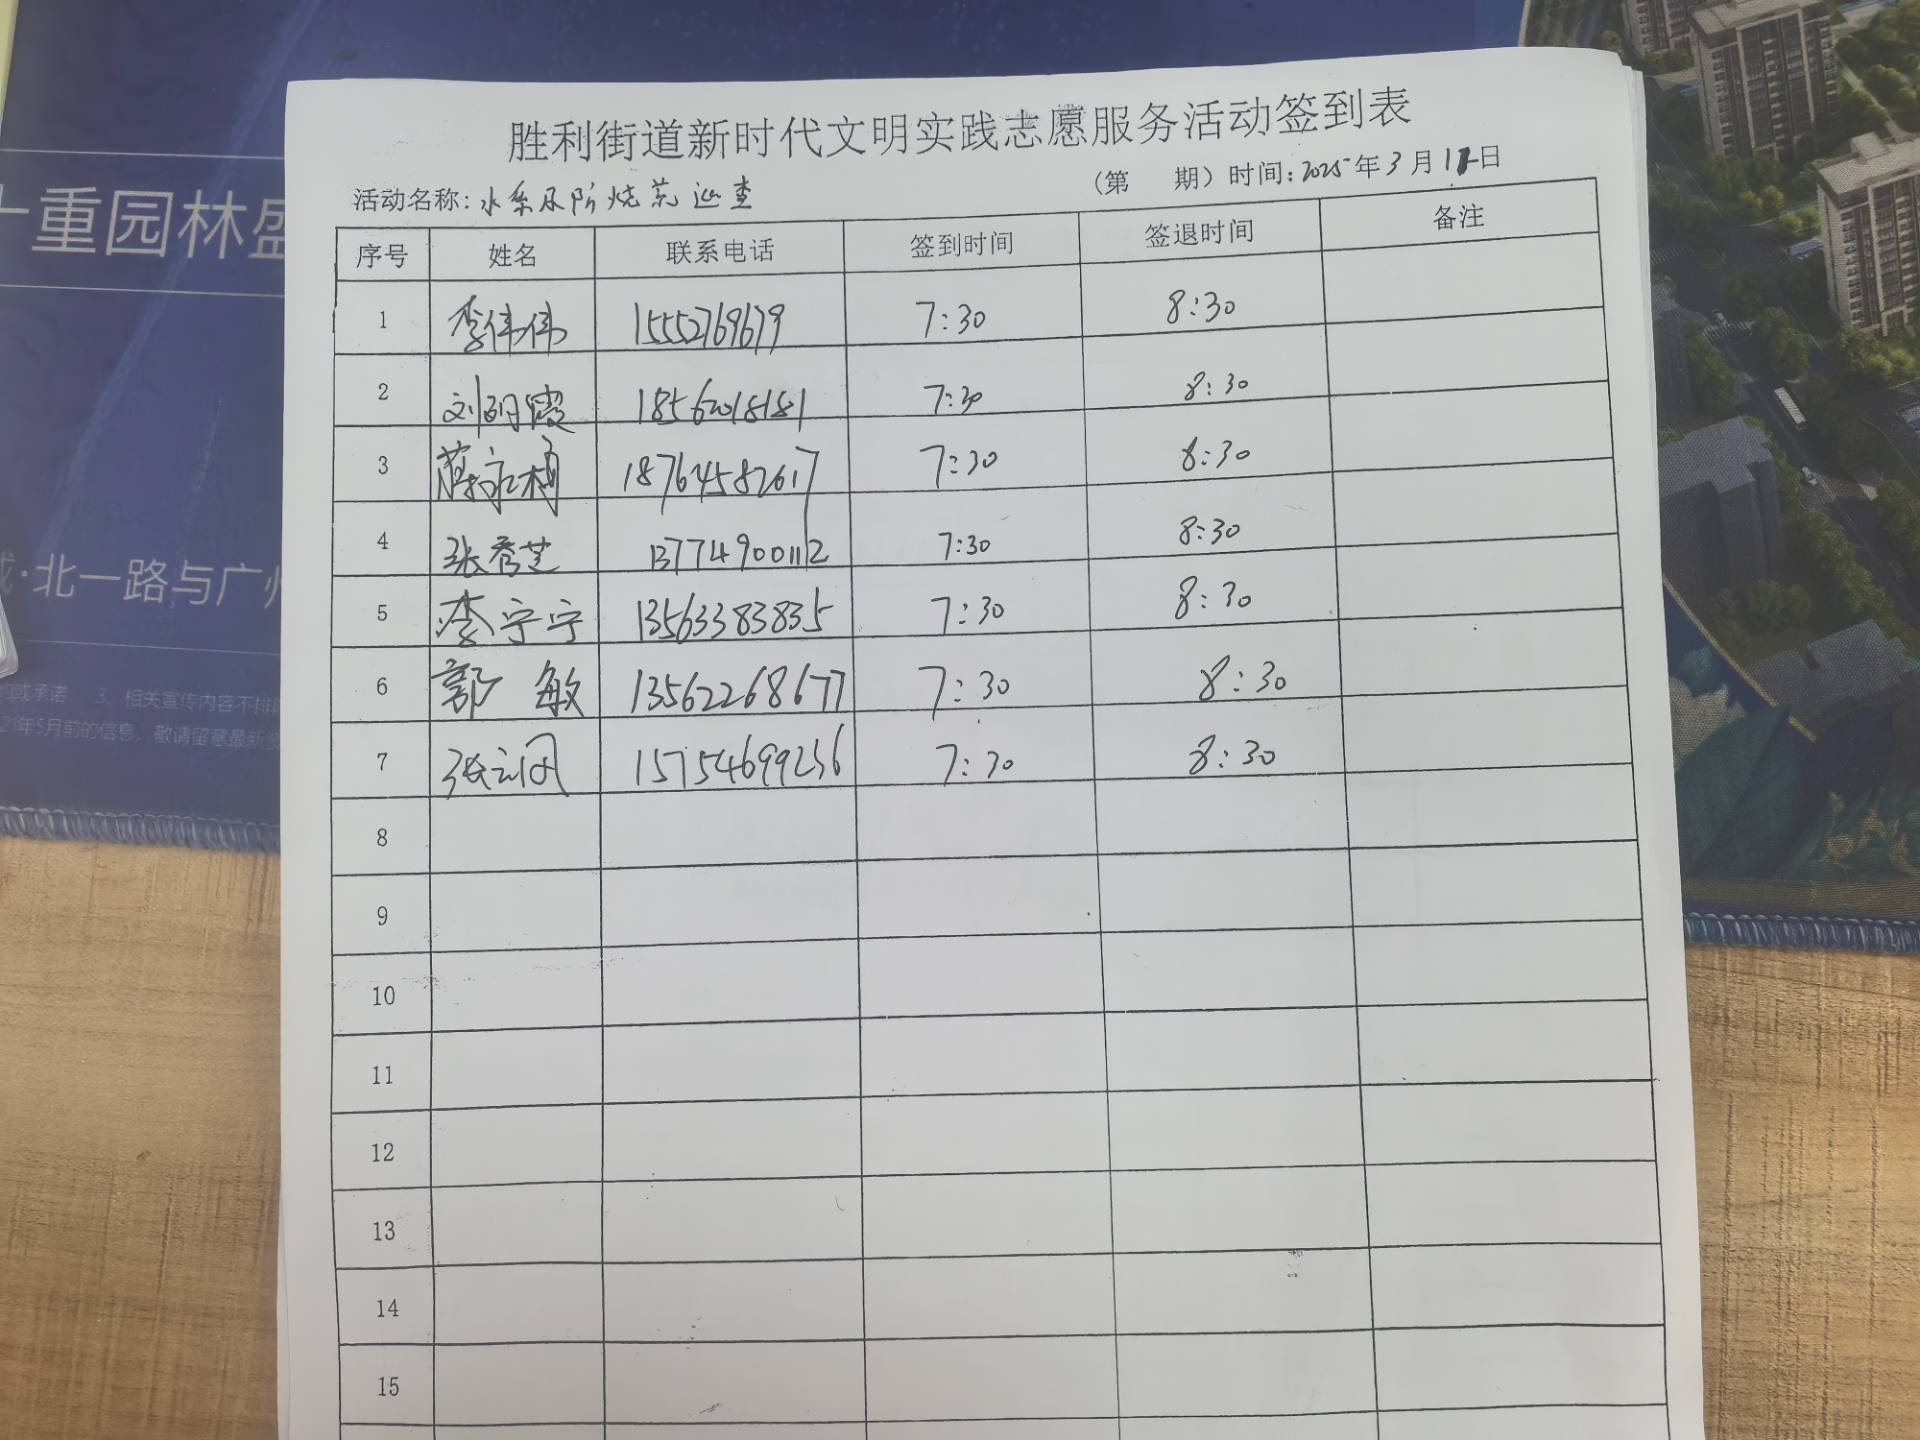 十重园林盛
城·北一路与广州
约或承诺 3、相关宣传内容不排
21年5月前的信息,敬请留意最新资
胜利街道新时代文明实践志愿服务活动签到表
活动名称: 水系及防烧荒巡查 (第 期) 时间: 2025年3月12日
序号 姓名 联系电话 签到时间 签退时间 备注
1 李伟伟 15552769679 7:30 8:30
2 刘明霞 18562018181 7:30 8:30
3 蒋永梅 18764582617 7:30 8:30
4 张秀芝 13774900112 7:30 8:30
5 李宁宁 13563383835 7:30 8:30
6 郭敏 13562268677 7:30 8:30
7 张云凤 15754699236 7:30 8:30
8
9
10
11
12
13
14
15